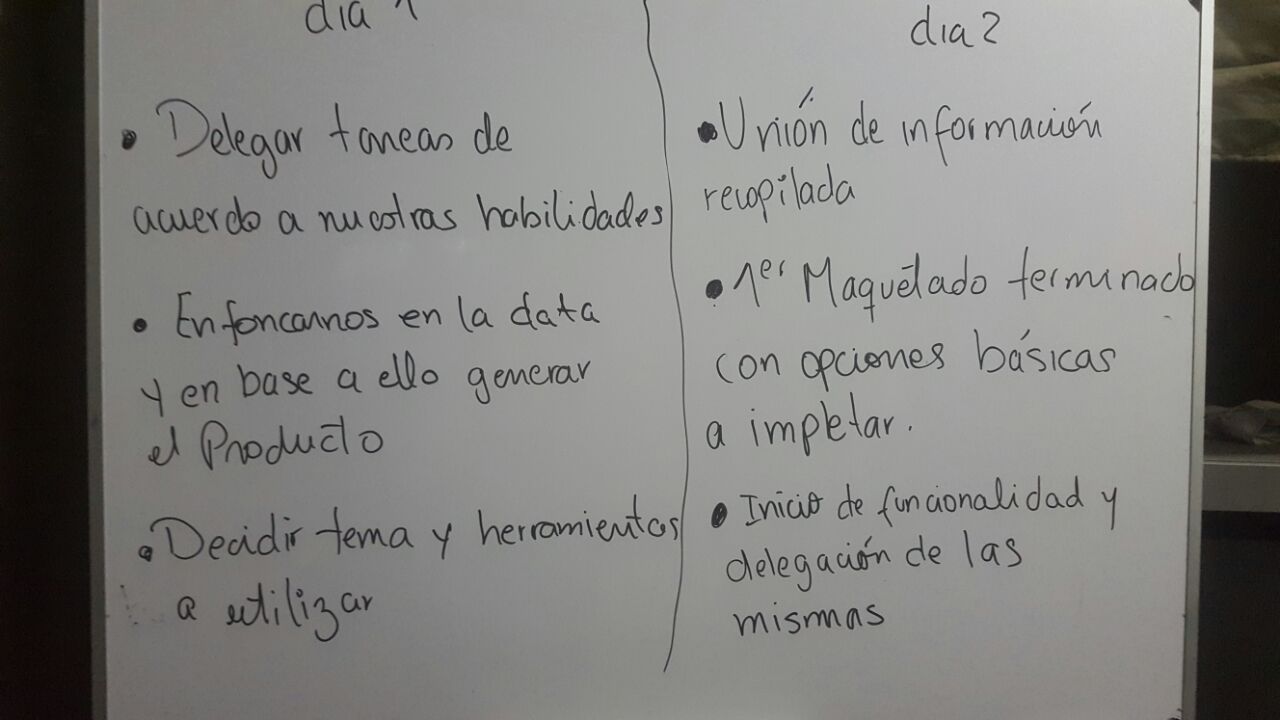 dia 1
• Delegar tareas de
acuerdo a nuestras habilidades
• Enfoncarnos en la data
y en base a ello generar
el Producto
• Decidir tema y herramientas
a utilizar
dia 2
• Unión de información
recopilada
• 1er Maquetado terminado
con opciones básicas
a impletar.
• Inicio de funcionalidad y
delegación de las
mismas